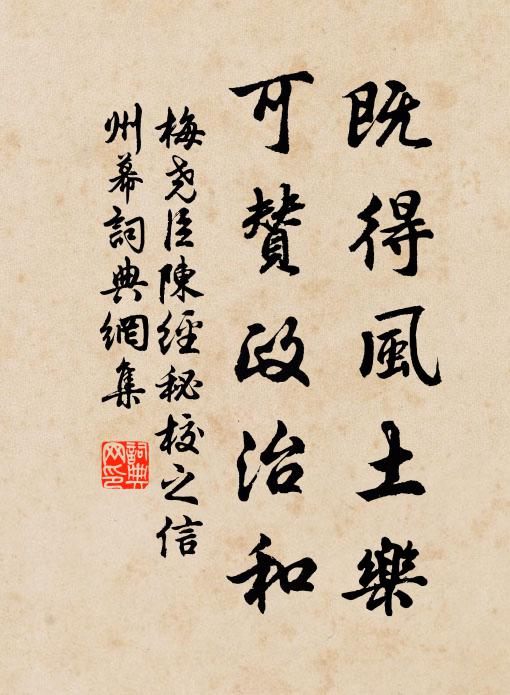 既得風土樂
可贊政治和
梅堯臣陳經秘校之信
州幕詞典網集
詞典网印